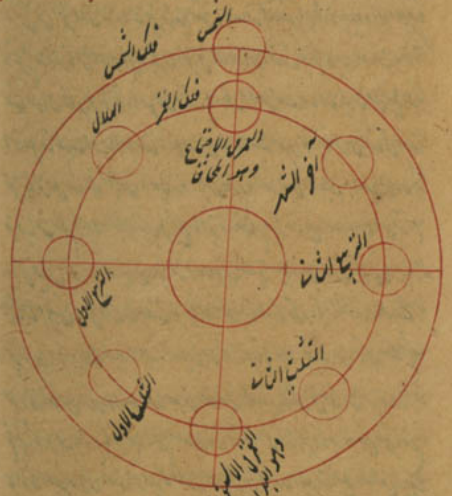 الشمس
فلك الشمس
فلك القمر
الهلال
القمر في الاجتماع
وهو المحاق
آخر الشهر
التربيع الثاني
التربيع الاول
التثليث الثاني
التثليث الاول
القمر في
وهو البدر